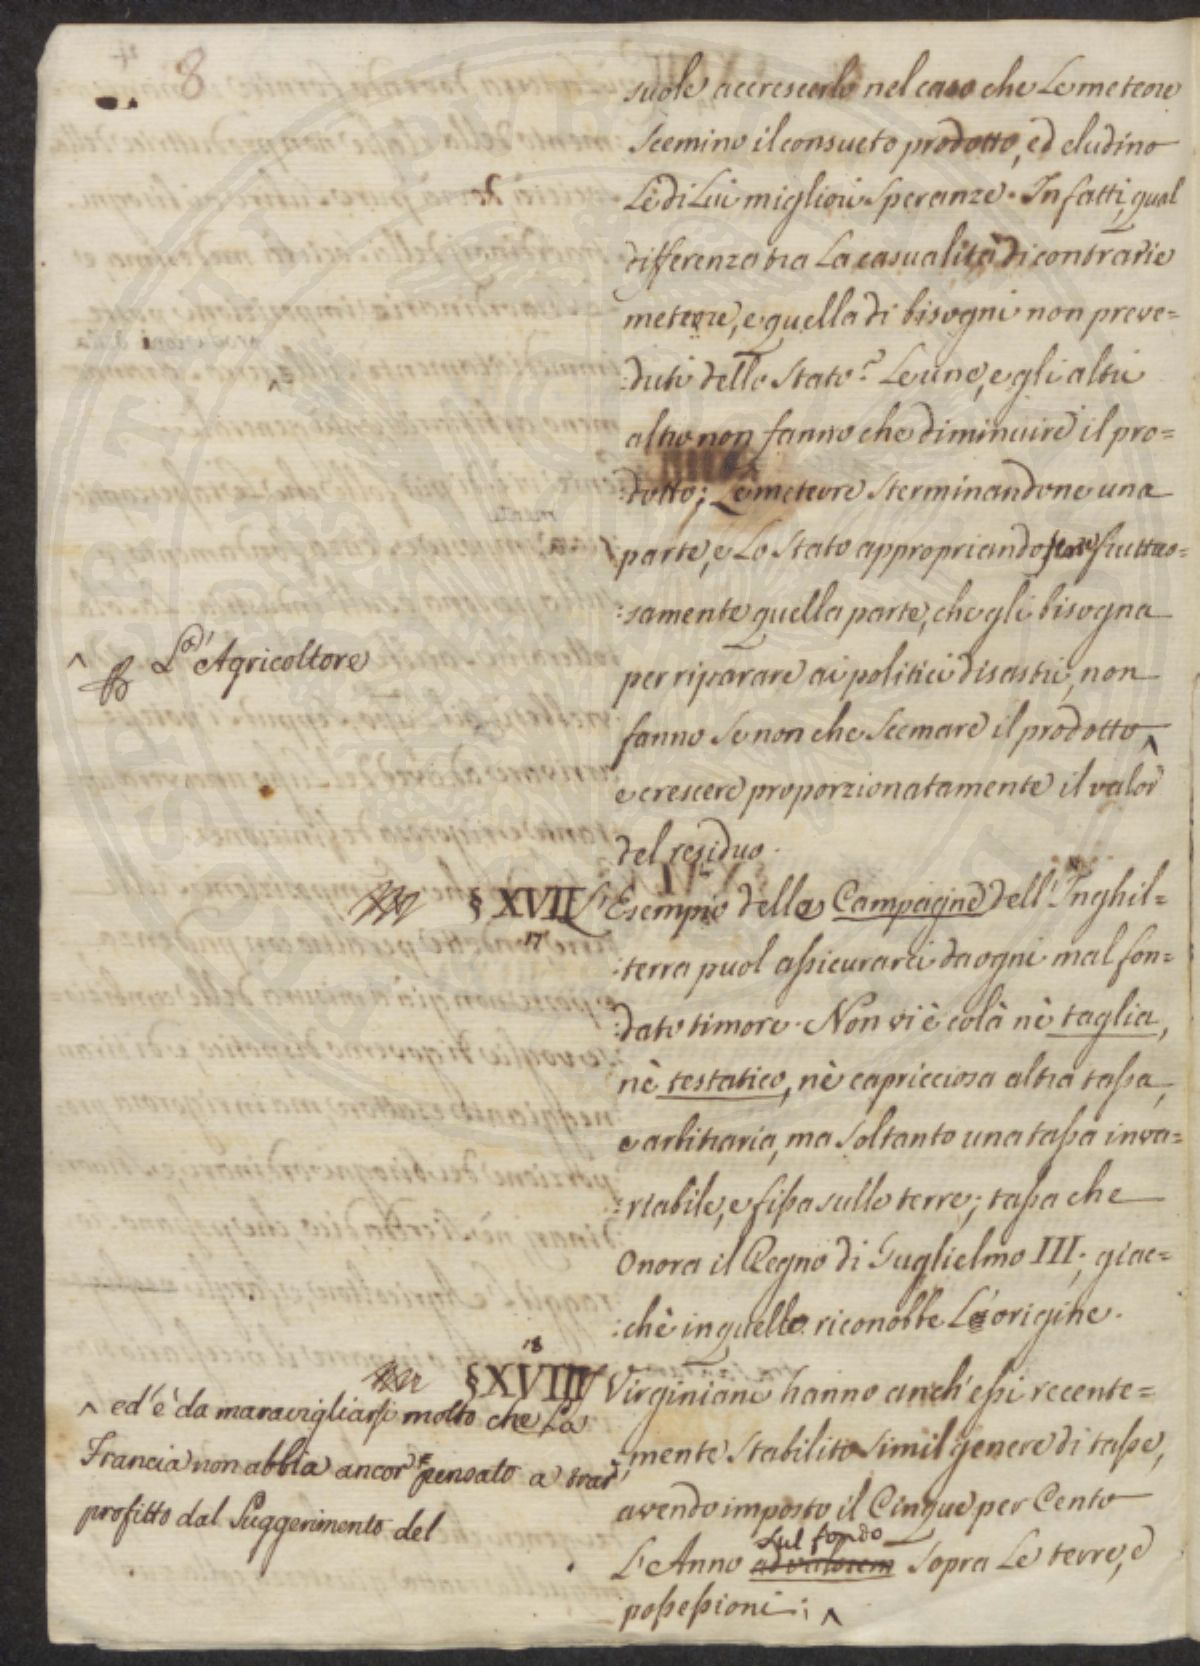 8
suole accrescerlo nel caso che Le meteore
Scemino il consueto prodotto, ed eludino
Le di Lui migliori Speranze. In fatti, qual
differenza tra La casualità di contrarie
meteore, e quella di bisogni non preve=
:duti dello Stato? Le une, e gli altri
altro non fanno che diminuire il pro=
:dotto; Le meteore Sterminandone una
parte, e Lo Stato appropriandosene fruttuo=
:samente quella parte, che gli bisogna
per riparare ai politici disastri, non
fanno Se non che Scemare il prodotto ^
e crescere proporzionatamente il valor
del residuo.
^ L' Agricoltore
§ XVII L' Esempio delle Campagne dell' Inghil=
17
:terra puol aſsicurarci da ogni mal fon=
:dato timore. Non vi è colà nè taglia,
nè testatico, nè capricciosa altra taſsa,
e arbitraria, ma Soltanto una taſsa inva=
:riabile, e fiſsa sulle terre; taſsa che
Onora il Regno di Guglielmo III; giac=
:chè in quello riconobbe L'origine.
18
§ XVIII I Virginiani hanno anch' eſsi recente=
:mente Stabilito Simil genere di taſse,
avendo imposto il Cinque per Cento
L' Anno ad valorem sul fondo Sopra Le terre, e
poſseſsioni; ^
^ ed' è da maravigliarsi molto che La
Francia non abbia ancor pensato a trar
profitto dal Suggerimento del